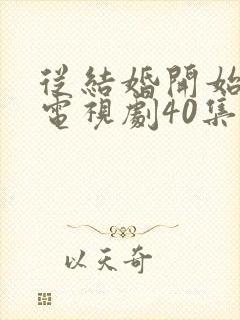 從結婚開始
電視劇40集
以天奇